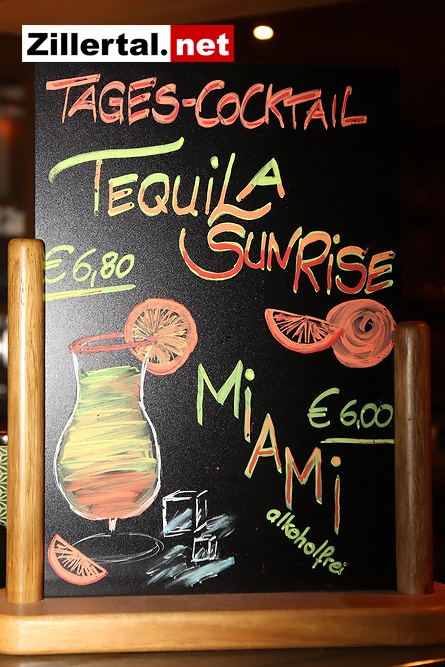 Zillertal.net
TAGES-COCKTAIL
TEQUILA
SUNRISE
€ 6,80
MiAMi
€ 6,00
alkoholfrei